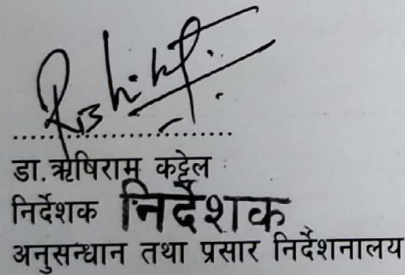 डा. ऋषिराम कट्टेल
निर्देशक निर्देशक
अनुसन्धान तथा प्रसार निर्देशनालय